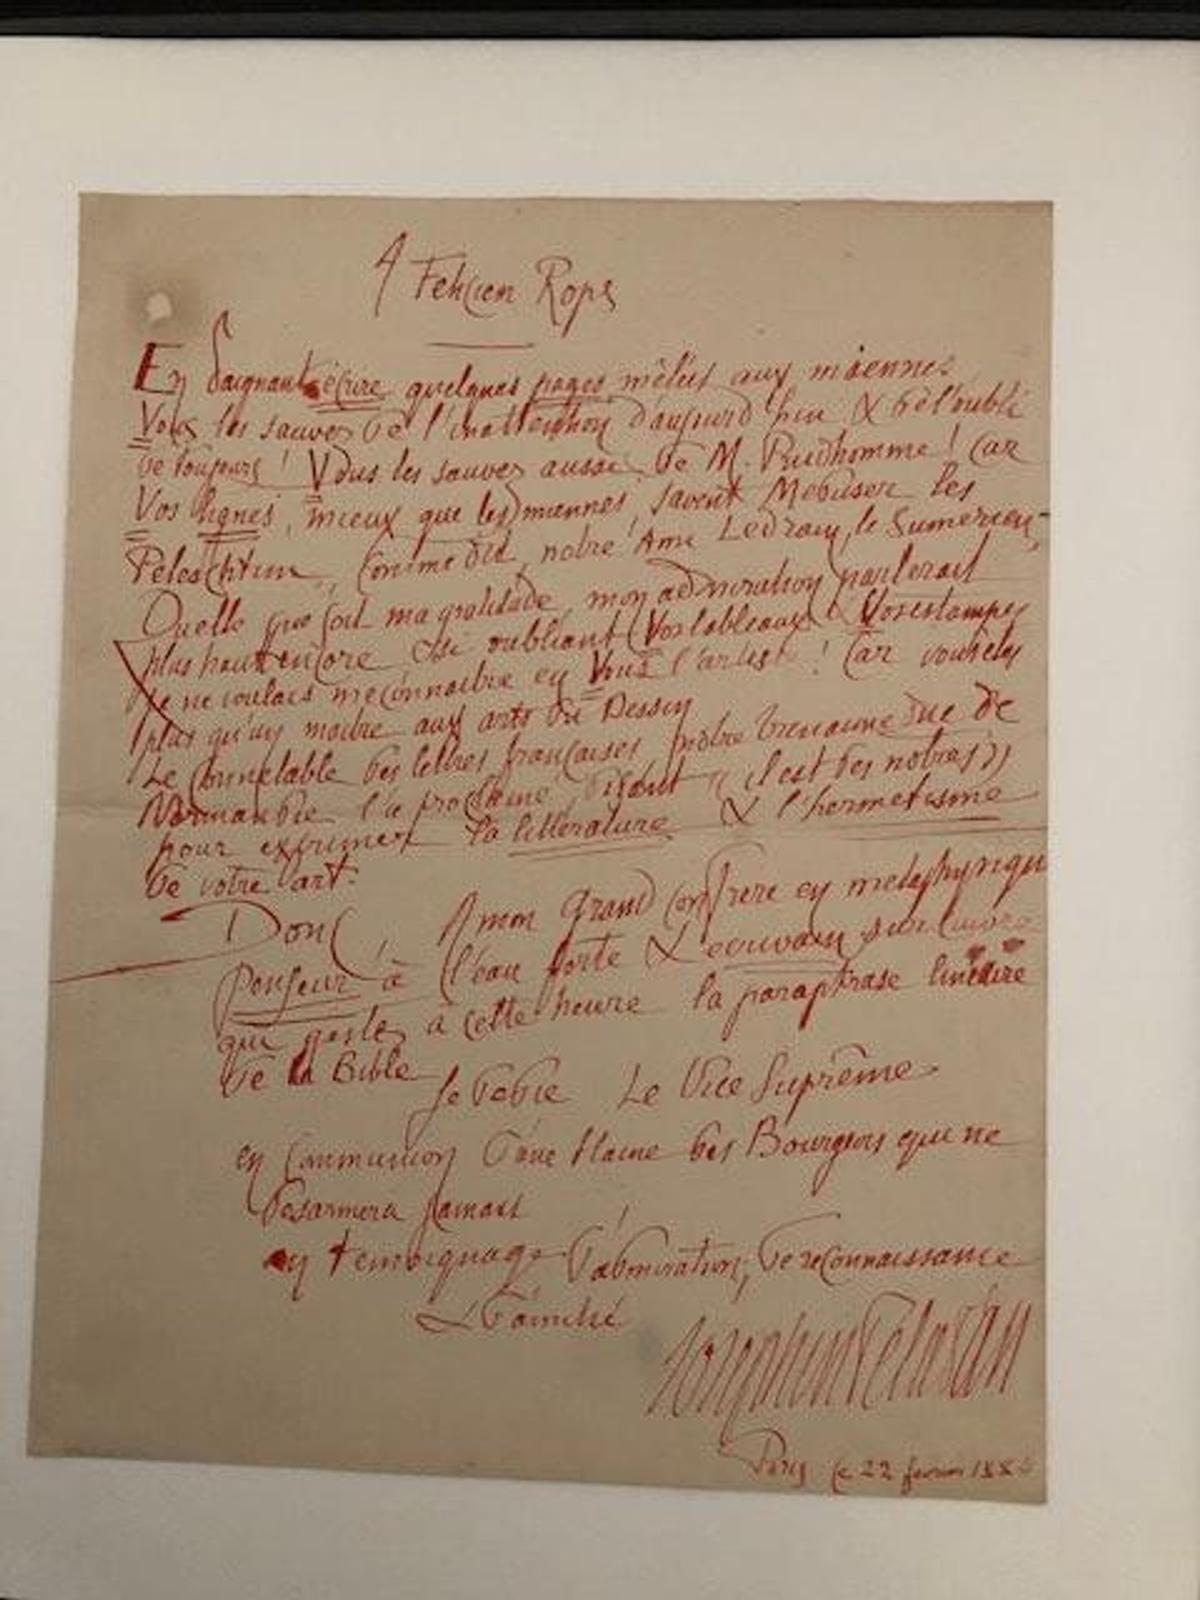 A Félicien Rops
En daignant écrire quelques pages mêlées aux miennes
Vous les sauvez de l'inattention d'aujourd'hui & de l'oubli
de toujours ! Vous les sauvez aussi de M. Prudhomme ! Car
Vos lignes, mieux que les miennes, savent Méduser les
comme dit notre Ami Ledrain, le Sumérien,
Quelle que soit ma gratitude, mon admiration parlerait
plus haut encore & si oubliant Vos tableaux & Vos estampes
je ne voulais méconnaitre en Vous l'artiste ! Car vous êtes
plus qu'un maitre aux arts du Dessin
Le Connetable des lettres françaises notre duc de
Normandie l'a proclamé disant "il est des notres"
pour exprimer la littérature & l'hermétisme
de votre art.
Donc A mon Grand Confrère en métaphysique
Penseur à l'eau forte & écrivain sur cuivre
qui à cette heure la paraphrase linéaire
de la Bible
Je dédie Le Vice Suprême
en Communion d'une Haine des Bourgeois qui ne
désarmera jamais
en témoignage d'admiration, de reconnaissance
& d'amitié
Joséphin Péladan
Paris le 22 février 188